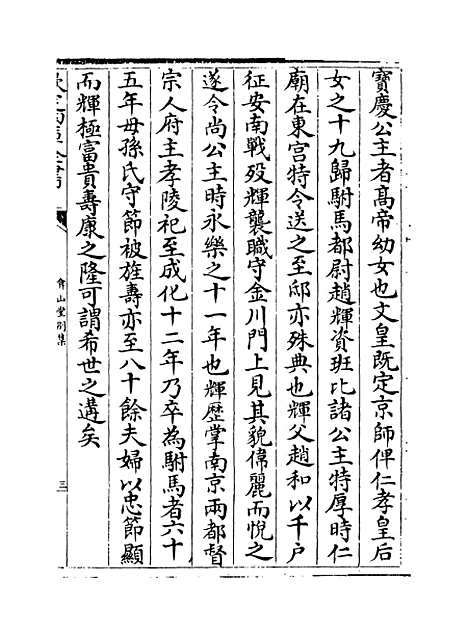 寶慶公主者髙帝幼女也文皇既定京師俾仁孝皇后
女之十九歸駙馬都尉趙輝資班比諸公主特厚時仁
廟在東宫特令送之至邸亦殊典也輝父趙和以千户
征安南戰殁輝襲職守金川門上見其貌偉麗而悅之
遂令尚公主時永樂之十一年也輝歴掌南京兩都督
宗人府主孝陵祀至成化十二年乃卒為駙馬者六十
五年母孫氏守節被旌壽亦至八十餘夫婦以忠節顯
而輝極富貴壽康之隆可謂希世之遘矣
弇山堂别集
三